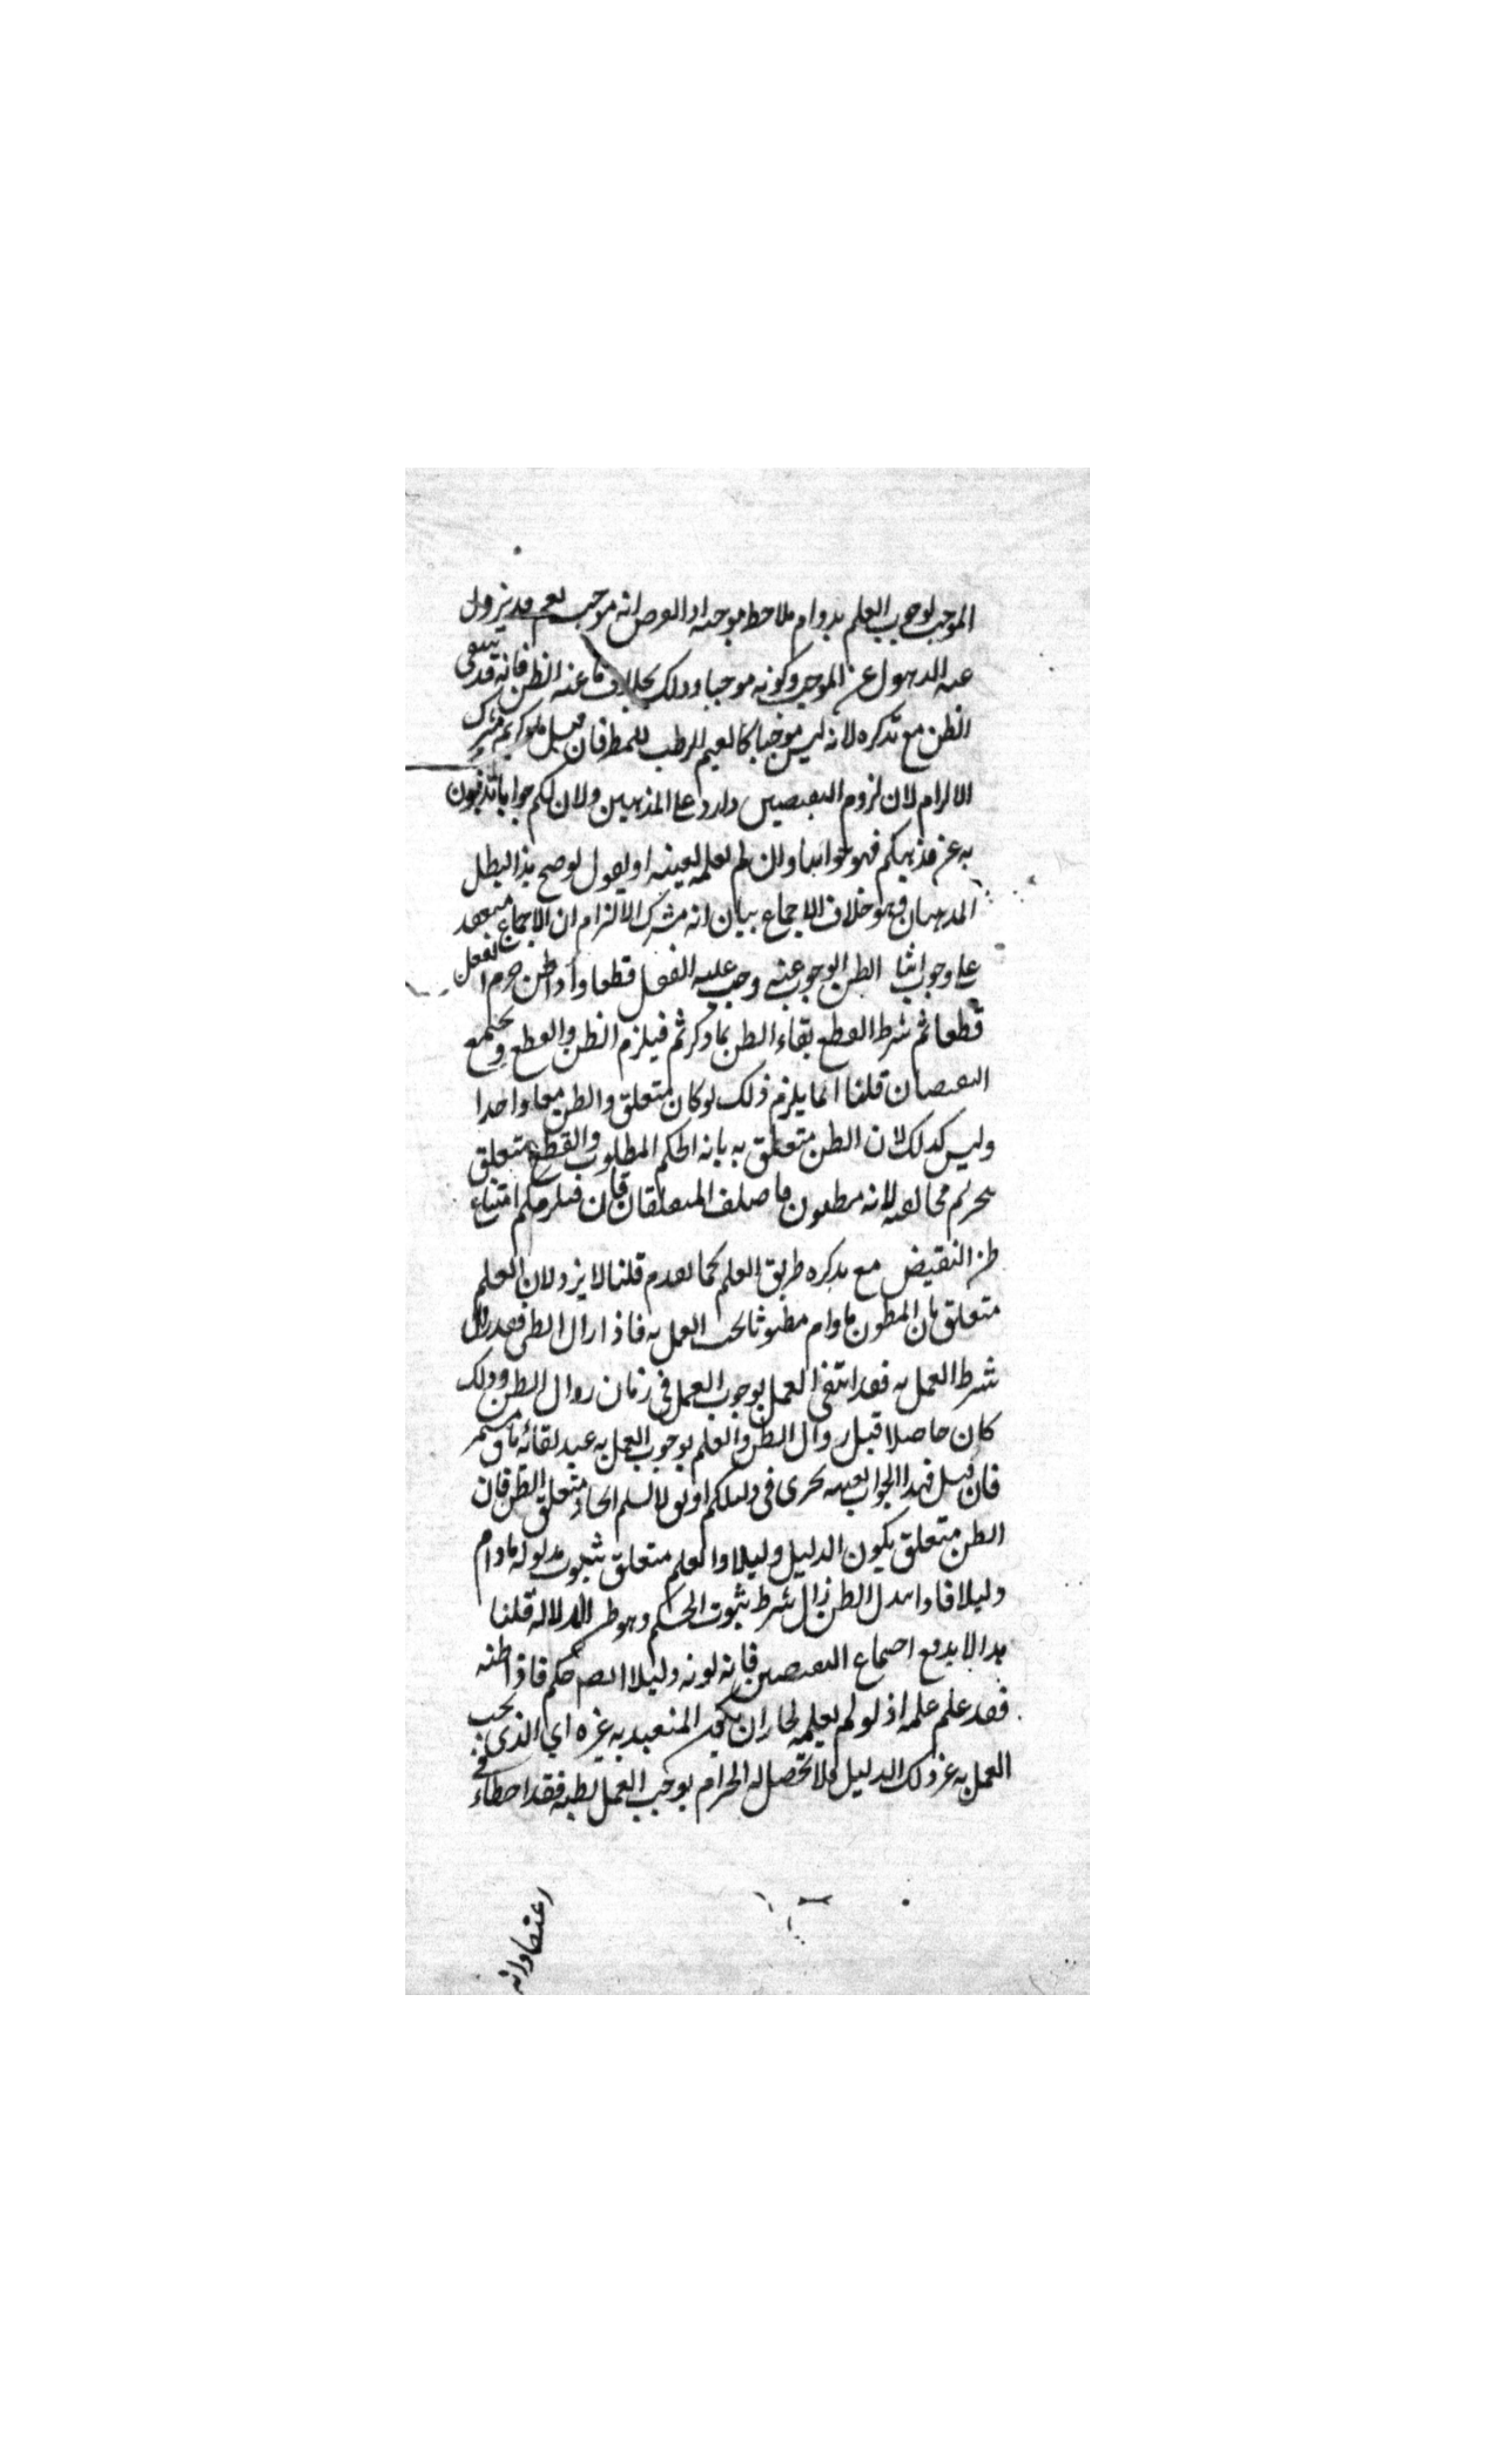 الموجب لوجوب العلم بدوام ملاحظ موجبه اذ الفرض انه موجب نعم قد يزول
عنه الذهول عن الموجب وكونه موجبا وذلك بخلاف ما عنه الظن فانه قد ينتفى
الظن مع تذكره لانه ليس موجبا كالغيم الرطب للمطر فان قيل مشترك
الالزام لان لزوم النقيضين وارد على المذهبين ولان لكم جوابا تذبون
به عن مذهبكم فهو جوابنا وان لم نعلمه بعينه او يقول لو صح هذا لبطل
المذهبان وهو خلاف الاجماع بيان انه مشترك الالزام ان الاجماع منعقد
على وجوب الظن الوجوب عنه وجب عليه الفعل قطعا واذا ظن حرم الفعل
قطعا ثم شرط القطع بقاء الظن بما ذكرتم فيلزم الظن والقطع ويجتمع
النقيضان قلنا انما يلزم ذلك لو كان متعلق والظن معا واحدا
وليس كذلك لان الظن متعلق به بانه الحكم المطلوب والقطع متعلق
بتحريم مخالفته لانه مظنون فاختلف المتعلقان فان قيل فيلزمكم امتناع
ظن النقيض مع تذكره طريق العلم كما تقدم قلنا لا يزول لان العلم
متعلق بان المظنون مادام مظنونا يجب العمل به فاذا زال الظن فقد زال
شرط العمل به فقد انتفى العمل بوجوب العمل فى زمان زوال الظن وذلك
كان حاصلا قبل زوال الظن والعلم بوجوب العمل به عند بقائه باق مستمر
فان قيل فهذا الجواب بعينه يجرى فى دليلكم او يق لا نسلم اتحاد متعلق الظن فان
الظن متعلق بكون الدليل دليلا والعلم متعلق بثبوت مدلوله مادام
دليلا فاذا تبدل الظن زال شرط ثبوت الحكم وهو ظن الدلالة قلنا
هذا لا يدفع اجتماع النقيضين فان كونه دليلا ايضا حكم فاذا ظنه
فقد علم علمه اذ لو لم يعلمه لجاز ان يكون المتعبد به غيره اي الذى يجب
العمل به غير ذلك الدليل فلا تحصل له الجزم بوجوب العمل بظنه فقد اخطاء فى
اعتقاد انه